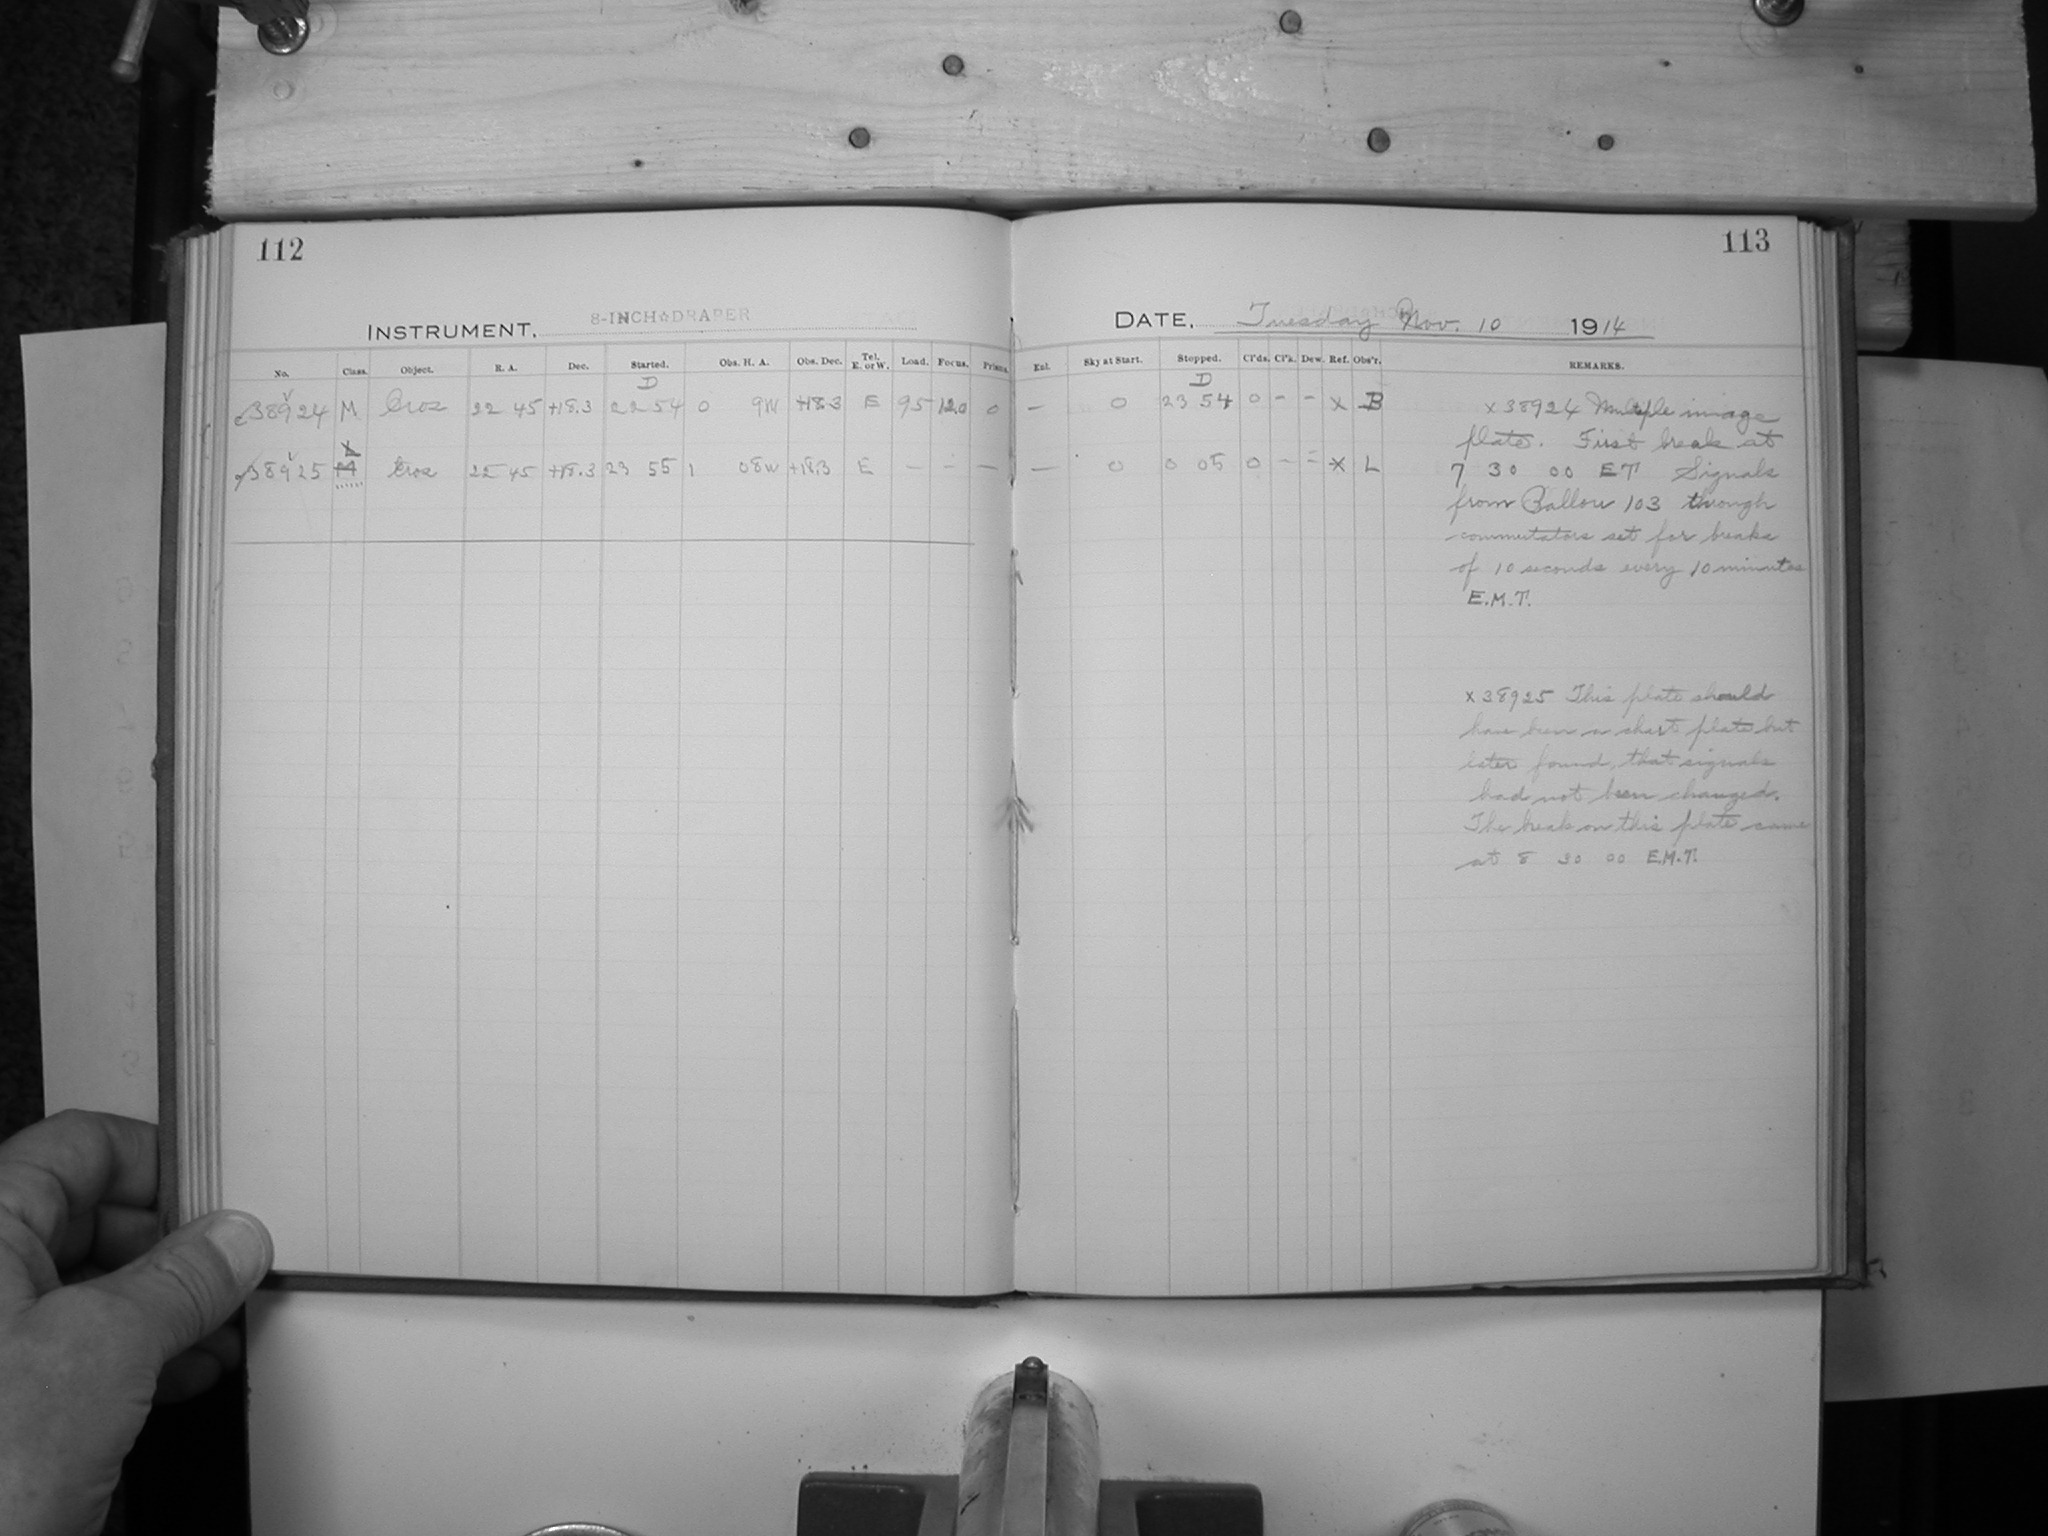 112
113
INSTRUMENT, 8-INCH☆DRAPER
DATE, Tuesday Nov. 10 1914
No. Class. Object. R. A. Dec. Started. Obs. H. A. Obs. Dec. Tel. E. or W. Load. Focus. Prisms. Exl. Sky at Start. Stopped. Cl'ds. Cl'k. Dew. Ref. Obs'r. REMARKS.
D D
38924 M Eros 22 45 +18.3 22 54 0 9W +18.3 E 95 12.0 0 — 0 23 54 0 - - x B
38925 L M Eros 22 45 +18.3 23 55 1 08W +18.3 E — - — — 0 0 05 0 - = x L
x 38924 Multiple image
plate. First break at
7 30 00 ET Signals
from Ballou 103 through
commutators set for breaks
of 10 seconds every 10 minutes
E.M.T.
x 38925 This plate should
have been a chart plate but
later found, that signals
had not been changed.
The break on this plate came
at 8 30 00 E.M.T.